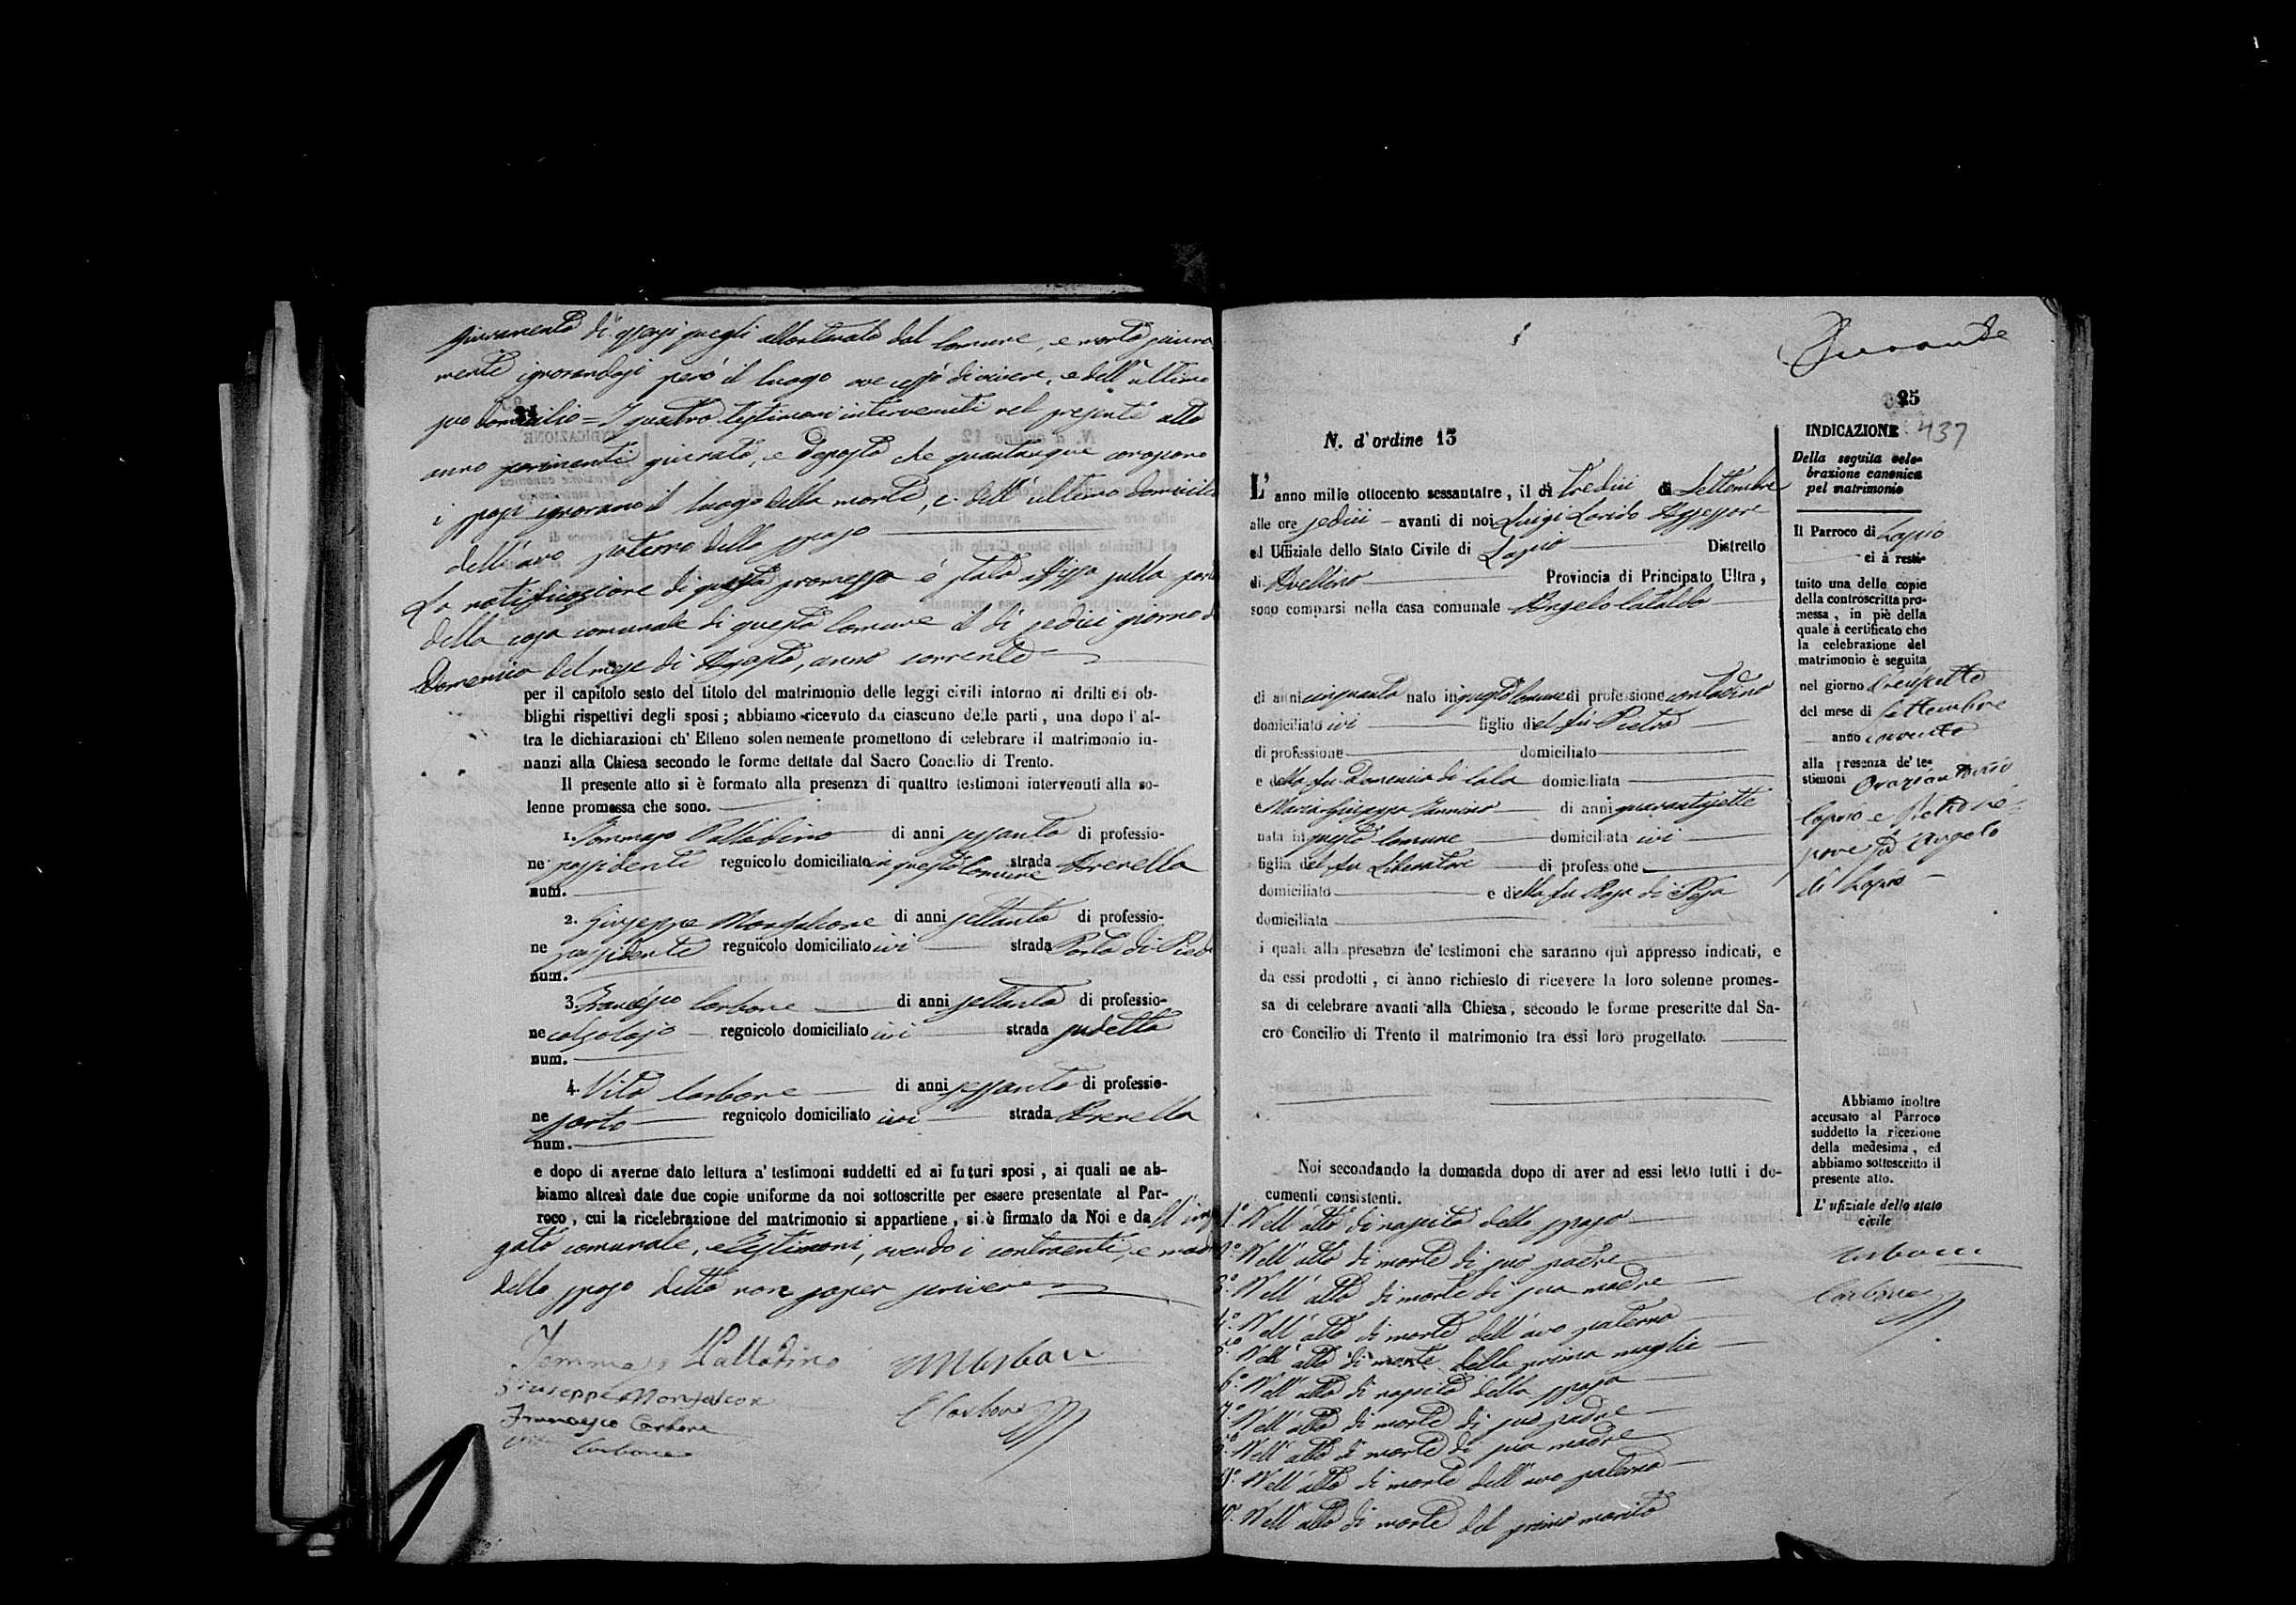 giuramento di essersi quegli allontanato dal Comune, e morto
mente ignorandosi però il luogo ove cessò di vivere, e dell'ultimo
suo domicilio = I quattro testimoni intervenuti nel presente atto
anno parimenti giurato, e deposto che quantunque conoscono
i sposi ignorano il luogo della morte, e dell'ultimo domicilio
dell'avo paterno dello sposo
La notificazione di questa promessa è stata affissa sulla porta
della casa comunale di questo Comune il dì sedici giorno di
Domenica del mese di Agosto, anno corrente
per il capitolo sesto del titolo del matrimonio delle leggi civili intorno ai dritti ed ob-
blighi rispettivi degli sposi; abbiamo ricevuto da ciascuno delle parti, una dopo l'al-
tra le dichiarazioni ch' Elleno solennemente promettono di celebrare il matrimonio in-
nanzi alla Chiesa secondo le forme dettate dal Sacro Concilio di Trento.
Il presente atto si è formato alla presenza di quattro testimoni intervenuti alla so-
lenne promessa che sono.
1. Tommaso Palladino di anni sessanta di professio-
ne possidente regnicolo domiciliato in questo Comune strada Arenella
num.
2. Giuseppe Monfalcone di anni settanta di professio-
ne possidente regnicolo domiciliato ivi strada Porta di
num.
3. Francesco Carbone di anni settanta di professio-
ne calzolajo regnicolo domiciliato ivi strada
num.
4. Vito Carbone di anni sessanta di professio-
ne sarto regnicolo domiciliato ivi strada Arenella
num.
e dopo di averne dato lettura a' testimoni suddetti ed ai futuri sposi, ai quali ne ab-
biamo altresì date due copie uniforme da noi sottoscritte per essere presentate al Par-
roco, cui la ricelebrazione del matrimonio si appartiene, si è firmato da Noi e da
gato comunale, e testimoni, avendo i contraenti, e madre
dello sposo detto non saper scrivere
Tommaso Palladino
Giuseppe Monfalcone
Francesco Carbone
Vito Carbone
C Carbone
25
437
N. d'ordine 13
L'anno mille ottocento sessantatre, il dì tredici di Settembre
alle ore sedici avanti di noi Luigi Assessore
ed Uffiziale dello Stato Civile di Lapio Distretto
di Avellino Provincia di Principato Ultra,
sono comparsi nella casa comunale Angelo Cataldo
di anni cinquanta nato in questo Comune di professione contadino
domiciliato ivi figlio del fu Pietro
di professione domiciliato
e della fu Domenica di Lala domiciliata
e Maria Giuseppa di anni quarantasette
nata in questo Comune domiciliata ivi
figlia del fu Liberatore di professione
domiciliato e della fu Rosa di
domiciliata
i quali alla presenza de' testimoni che saranno qui appresso indicati, e
da essi prodotti, ci ànno richiesto di ricevere la loro solenne promes-
sa di celebrare avanti alla Chiesa, secondo le forme prescritte dal Sa-
cro Concilio di Trento il matrimonio tra essi loro progettato.
Noi secondando la domanda dopo di aver ad essi letto tutti i do-
cumenti consistenti.
1° Nell'atto di nascita dello sposo
2° Nell'atto di morte di suo padre
3° Nell'atto di morte di sua madre
4° Nell'atto di morte dell'avo paterno
5° Nell'atto di morte della prima moglie
6° Nell'atto di nascita della sposa
7° Nell'atto di morte di suo padre
8° Nell'atto di morte di sua madre
9° Nell'atto di morte dell'avo paterno
10° Nell'atto di morte del primo marito
INDICAZIONE
Della seguita cele-
brazione canonica
pel matrimonio
Il Parroco di Lapio
ci à resti-
tuito una delle copie
della controscritta pro-
messa, in piè della
quale à certificato che
la celebrazione del
matrimonio è seguita
nel giorno
del mese di Settembre
anno corrente
alla presenza de' te-
stimoni
e
Angelo
di Lapio
Abbiamo inoltre
accusato al Parroco
suddetto la ricezione
della medesima, ed
abbiamo sottoscritto il
presente atto.
L'ufiziale dello stato
civile
Carbone